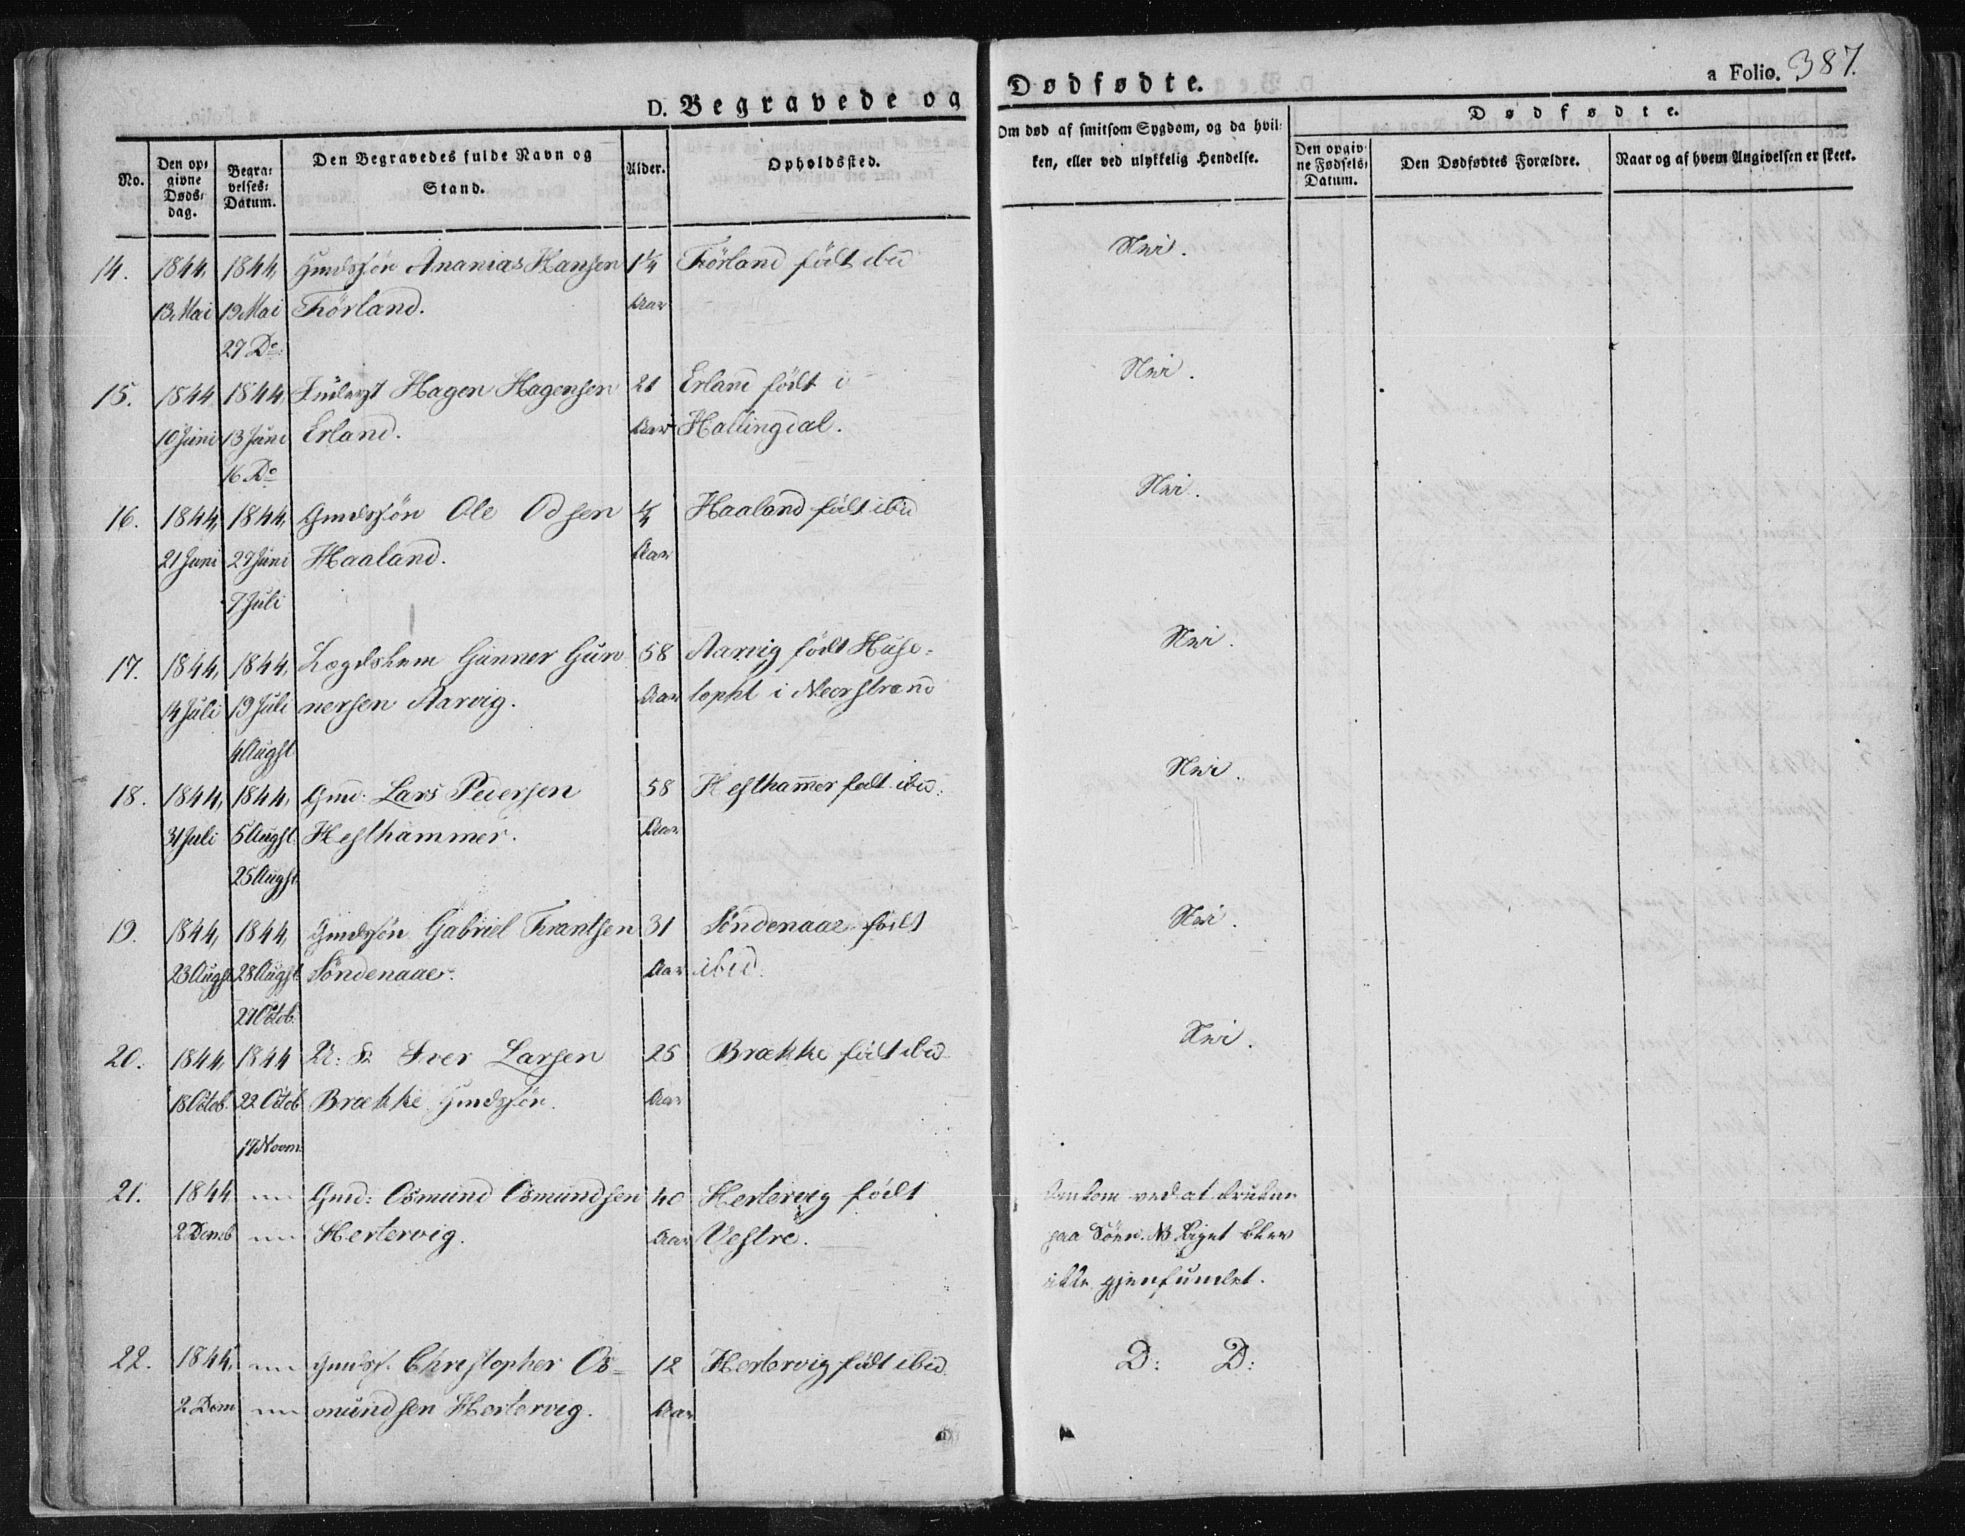 D. Begravede og Dødfødte.
a Folio. 387.
No.
Den opgivne Dødsdag.
Begravelses-Datum.
Den Begravedes fulde Navn og Stand.
Alder.
Opholdssted.
Om død af smitsom Sygdom, og da hvilken, eller ved ulykkelig Hendelse.
Dødfødte.
Den opgivne Fødsels-Datum.
Den Dødfødtes Forældre.
Naar og af hvem Angivelsen er skeet.
14. 1844, 1844, Gmdssøn Ananias Hansen 1¼ Förland født ibid Nei.
13 Mai 19 Mai Förland. Aar
27 Do:
15. 1844 1844 Hagen Hagensen 21 Erland født i Nei.
10 Juni 13 Juni Erland. Aar Hallingdal.
16 Do
16. 1844, 1844, Gmdssøn Ole Odsen ¼ Haaland født ibid Nei.
21 Juni 27 Juni Haaland. Aar
7 Juli
17. 1844, 1844, Lægdslem Gunner Gun- 58 Aarvig født Huse- Nei.
14 Juli 19 Juli nersen Aarvig. Aar i Neerstrand
4 Augst.
18. 1844, 1844, Gmd: Lars Pedersen 58 Hesthammer født ibid: Nei.
31 Juli 5 Augst. Hesthammer. Aar
25 Augst.
19. 1844, 1844, Gmdssøn Gabriel Frantsen 31 Söndenaae født Nei.
23 Augst. 28 Augst. Söndenaae. Aar ibid.
27 Octob.
20. 1844, 1844 Iver Larsen 25 Brække født ibid Nei.
18 Octob. 22 Octob. Brække Gmdssøn. Aar
17 Novm.
21. 1844 Gmd: Osmund Osmundsen 40 Hertervig født Omkom ved at drukne
2 Decmb Hertervig. Aar Vestre. paa Söen. NB Liget blev
ikke gjenfundet.
22. 1844, Gmdss. Christopher Os- 12 Hertervig født ibid. D: D:
2 Decm mundsen Hertervig. Aar